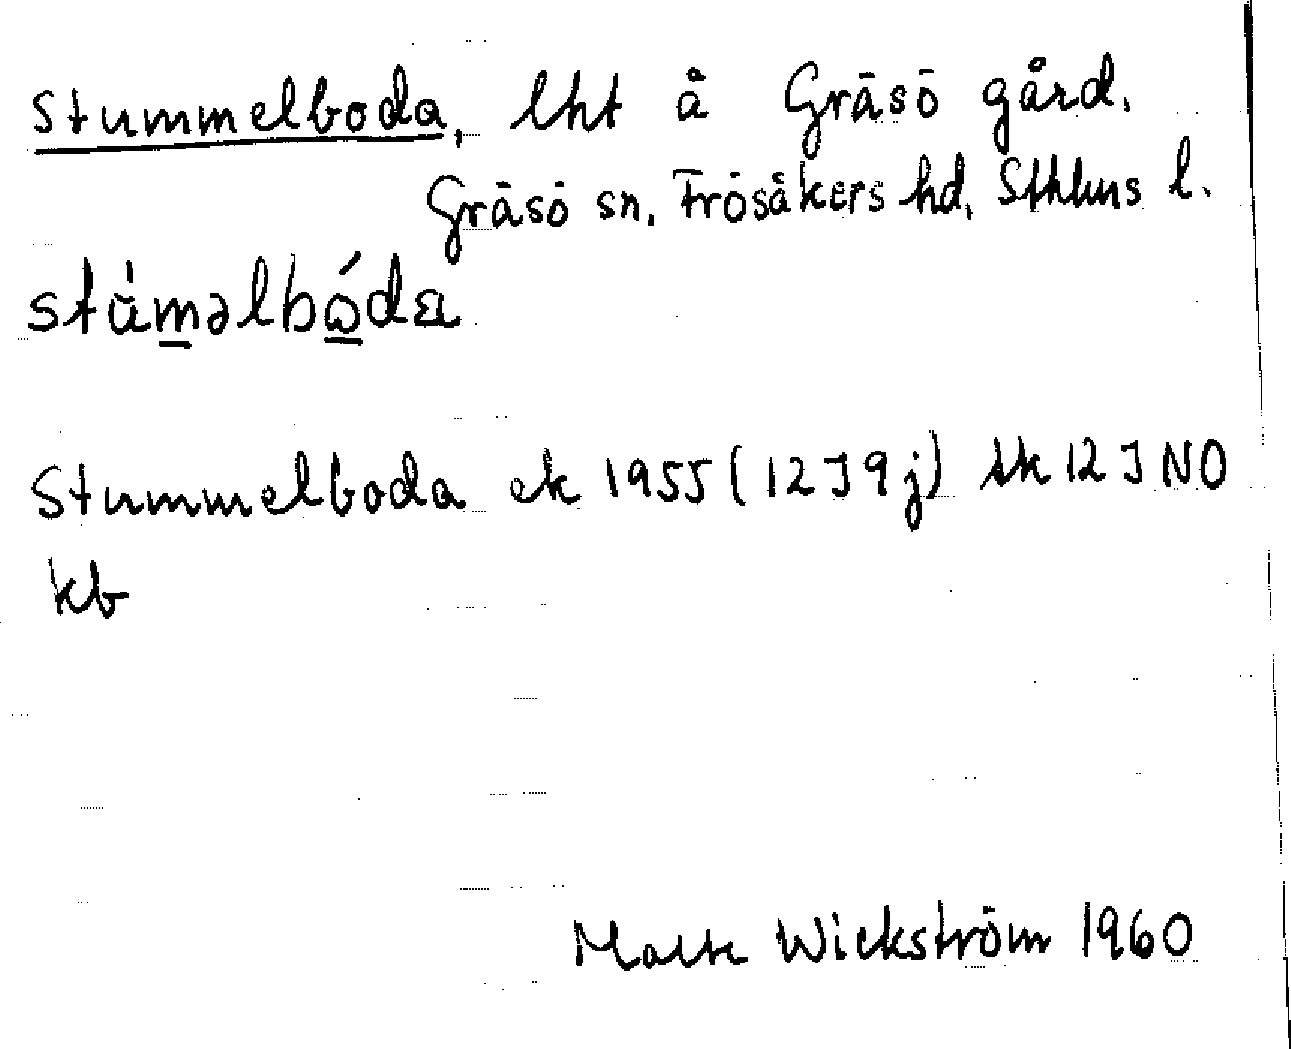 Stummelboda, lht å Gräsö gård.
Gräsö sn, Frösåkers hd, Sthlms l.
stúməlbωda
Stummelboda ek 1955 (12J9j) tk 12 J NO
kb
Malte Wickström 1960